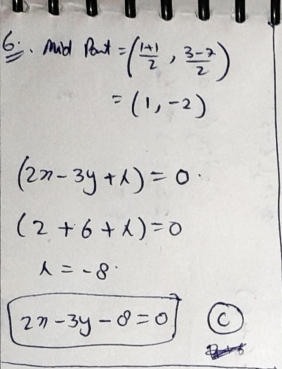 6. Mid Point = (1+1/2, 3-7/2)
= (1, -2)
(2x - 3y + λ) = 0.
(2 + 6 + λ) = 0
λ = -8.
2x - 3y - 8 = 0 (C)